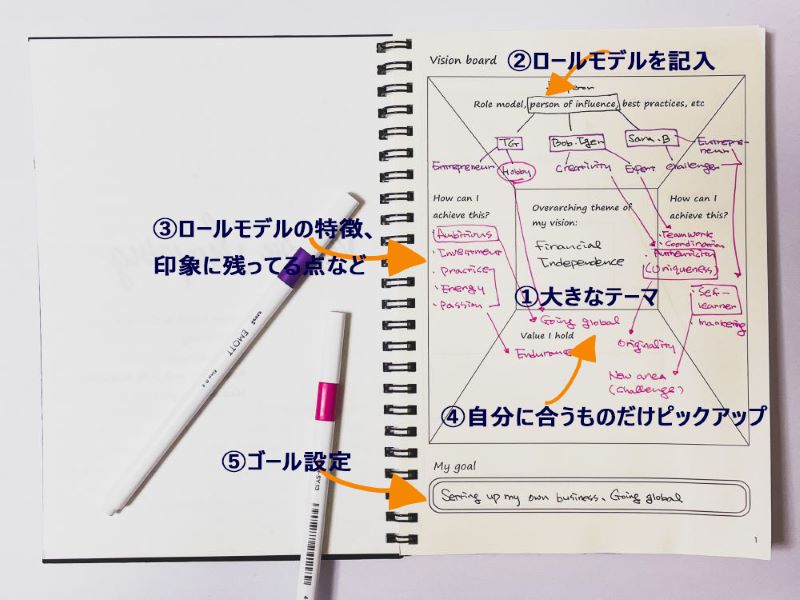 Vision board
②ロールモデルを記入
Role model, person of influence, best practices, etc
TGr
Bob. Iger
Sara. B
Entrepreneur
Entrepreneur
Hobby
Creativity
Expert
challenger
How can I
achieve this?
How can I
achieve this?
Overarching theme of
my vision:
Financial
Independence
③ロールモデルの特徴、
印象に残ってる点など
・Ambitious
・Investment
・Practice
・Energy
・Passion
・Teamwork
・Coordination
・Authenticity
(Uniqueness)
・Self-
learner
・Marketing
①大きなテーマ
Going global
Value I hold
Endurance
Originality
New area
(challenge)
④自分に合うものだけピックアップ
⑤ゴール設定
My goal
Setting up my own business、Going global
EMOTT
uni
1